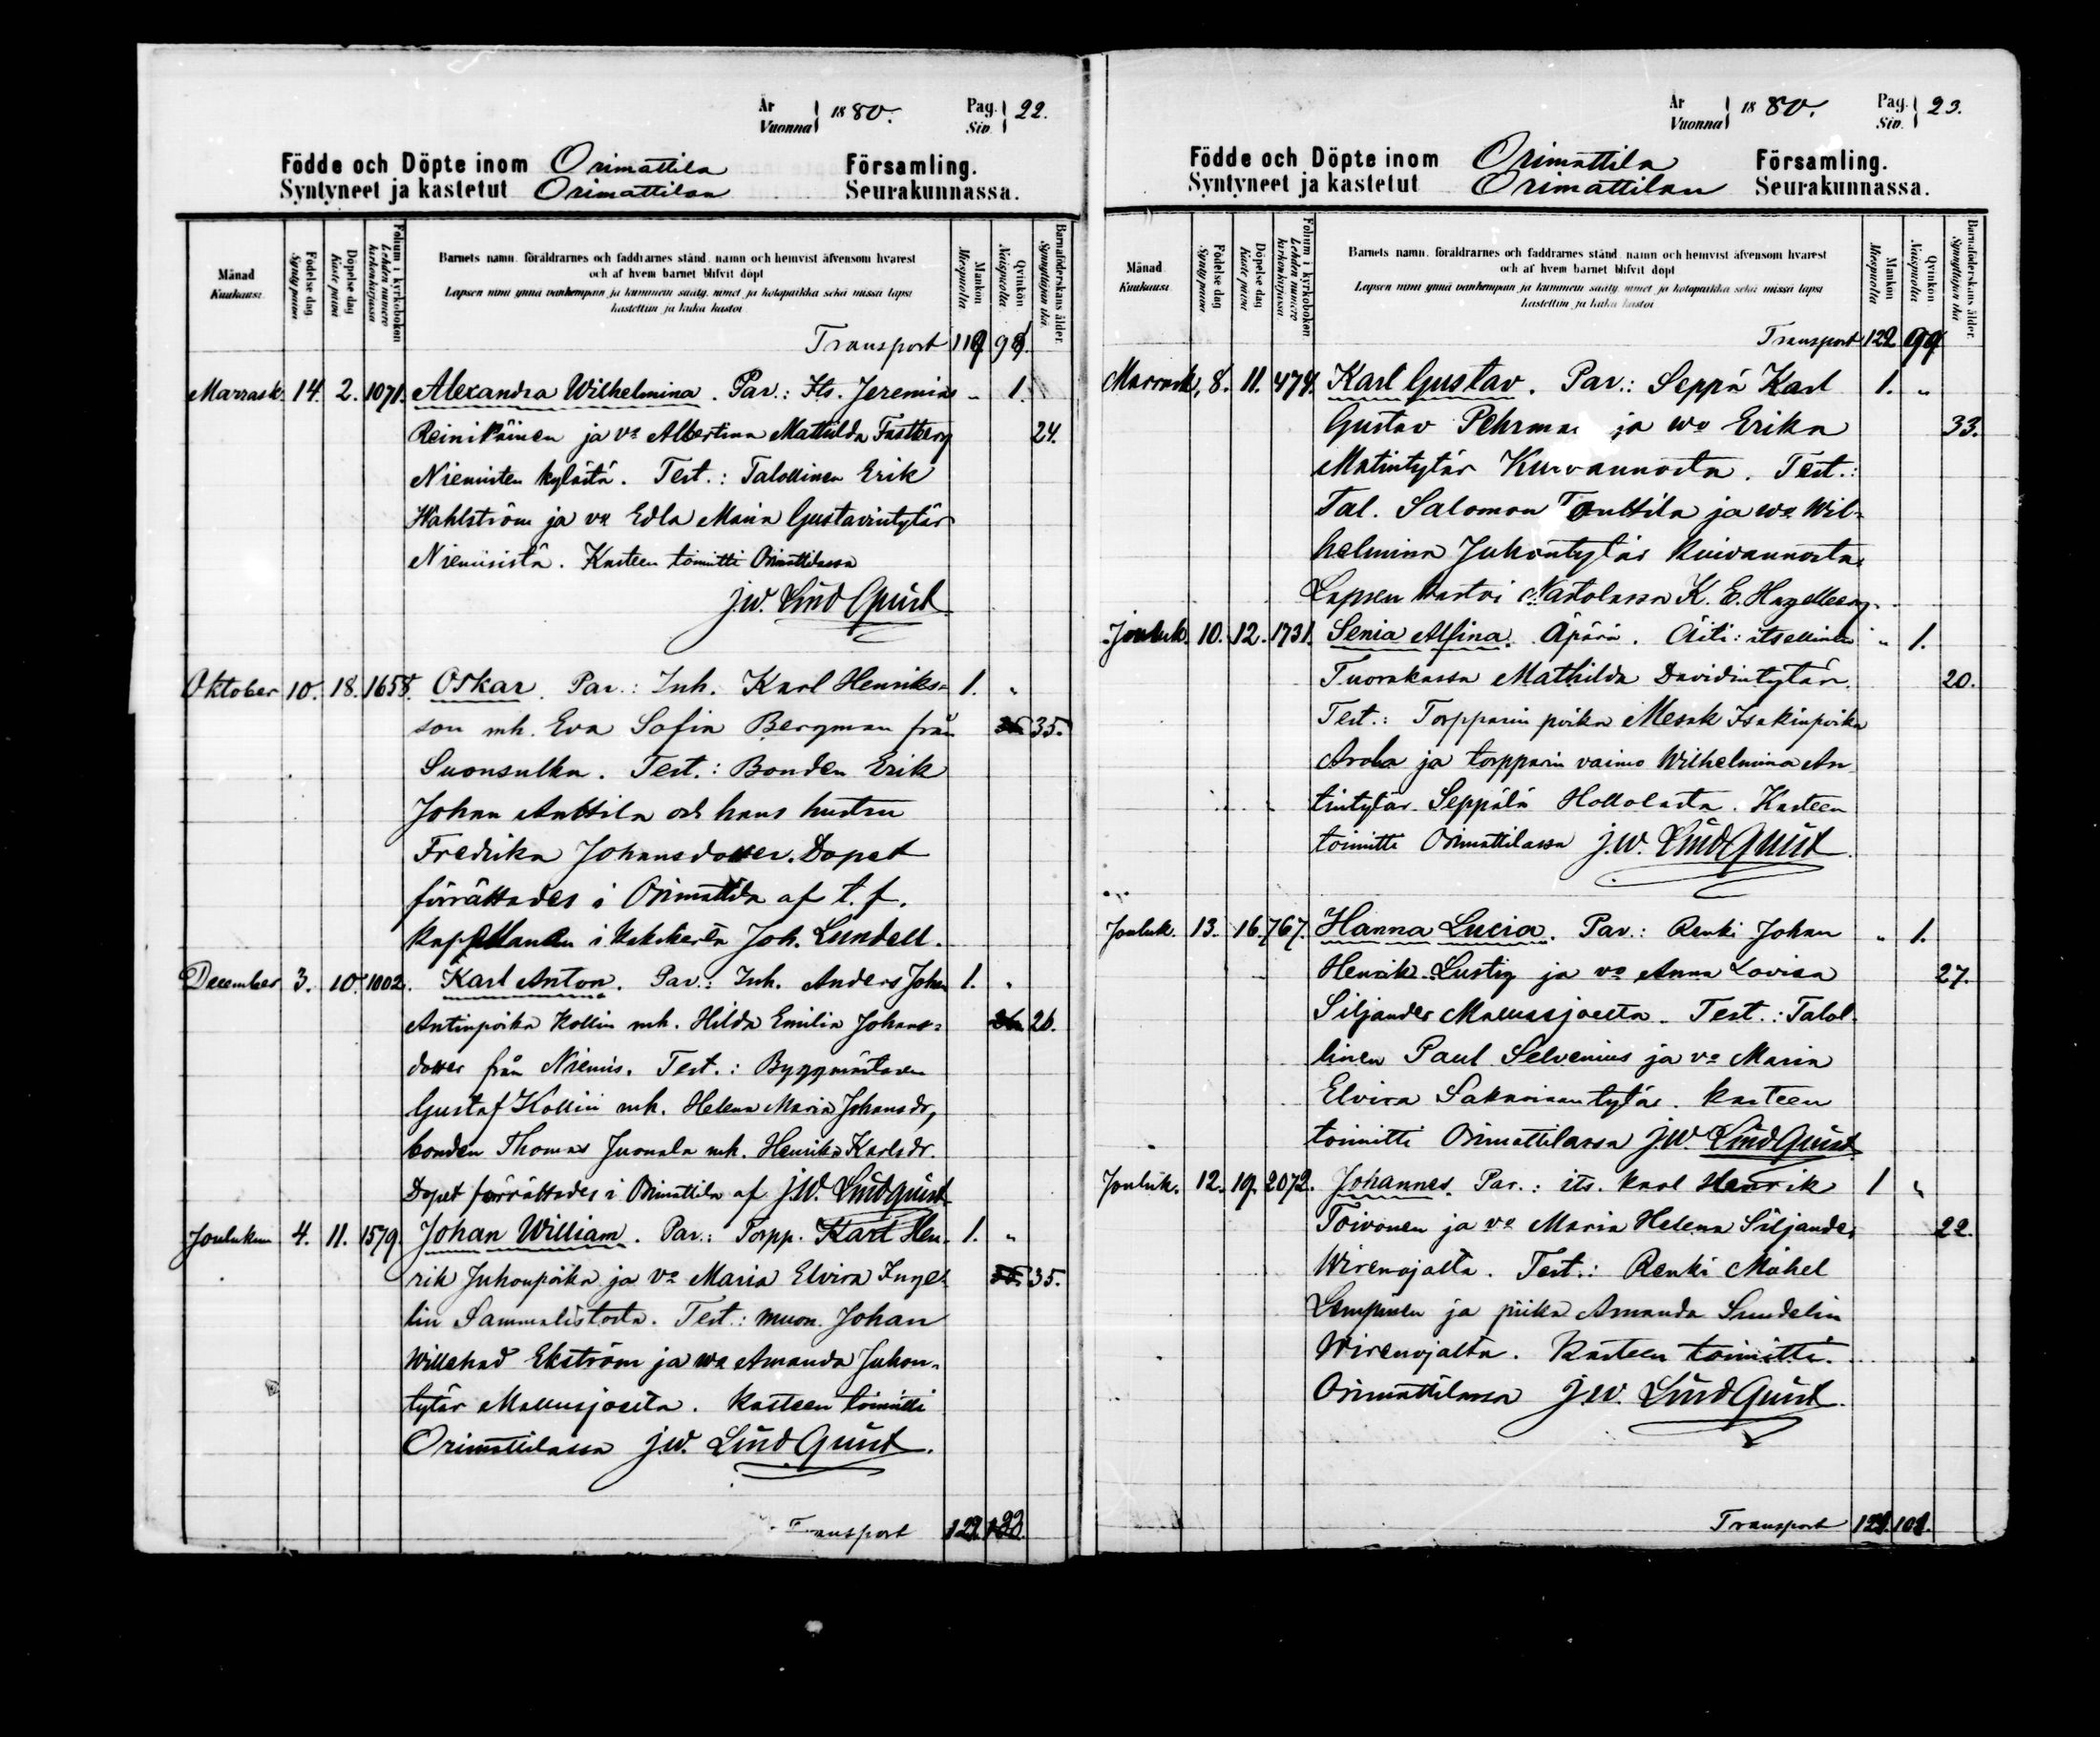 År
Vuonna 1880.
Pag.
Siv. 22.
Födde och Döpte inom Orimattila Församling.
Syntyneet ja kastetut Orimattilan Seurakunnassa.
Månad
Kuukausi.
Födelse dag
Syntypäivä
Döpelse dag
Kastepäivä
Folium i kyrkoboken
Lehden numero kirkonkirjassa
Barnets namn, föräldrarnes och faddrarnes stånd, namn och hemvist äfvensom hvarest
och af hvem barnet blifvit döpt
Lapsen nimi ynnä vanhempain ja kummein sääty, nimet ja kotopaikka sekä missä lapsi
kastettiin ja kuka kastoi
Mankön
Miespuolta
Qvinkön
Naispuolta
Barnaföderskans ålder.
Synnyttäjän ikä
Transport 118 98.
Marrask. 14. 2. 1071. Alexandra Wilhelmina. Par.: Its. Jeremias " 1.
Reinikäinen ja vo Albertina Mathilda Fastberg 24.
Niemisten kylästä. Test.: Talollinen Erik
Wahlström ja vo Edla Maria Gustavintytär
Niemisistä. Kasteen toimitti Orimattilassa
J.W. LindQuist
Oktober 10. 18. 1658. Oskar. Par.: Inh. Karl Henriks= 1. "
son mh. Eva Sofia Bergman från 35.
Suonsulka. Test.: Bonden Erik
Johan Anttila och hans hustru
Fredrika Johansdotter. Dopet
förrättades i Orimattila af t.f.
kapellanen i Joh. Lundell.
December 3. 10. 1002. Karl Anton. Par.: Inh. Anders Johan 1. "
Antinpoika Kollin mh. Hilda Emilia Johans= 26.
dotter från Niemis. Test.: Byggmästaren
Gustaf Kollin mh. Helena Maria Johansdr,
bonden Thomas Juonala mh. Henrika Karlsdr.
Dopet förrättades i Orimattila af J.W. Lindquist
Joulukuu 4. 11. 1579. Johan William. Par.: Torpp. Karl Hen- 1. "
rik Juhonpoika ja vo Maria Elvira Inge- 35.
lin Sammalistosta. Test.: muon. Johan
Willehad Ekström ja wo Amanda Juhon-
tytär Mallusjoelta. Kasteen toimitti
Orimattilassa J.W. LindQuist.
Transport 122.
År
Vuonna 1880.
Pag.
Siv. 23.
Födde och Döpte inom Orimattila Församling.
Syntyneet ja kastetut Orimattilan Seurakunnassa.
Månad
Kuukausi.
Födelse dag
Syntypäivä
Döpelse dag
Kastepäivä
Folium i kyrkoboken
Lehden numero kirkonkirjassa
Barnets namn, föräldrarnes och faddrarnes stånd, namn och hemvist äfvensom hvarest
och af hvem barnet blifvit döpt
Lapsen nimi ynnä vanhempain ja kummein sääty, nimet ja kotopaikka sekä missä lapsi
kastettiin ja kuka kastoi
Mankön
Miespuolta
Qvinkön
Naispuolta
Barnaföderskans ålder.
Synnyttäjän ikä
Transport 122 99
Marrask. 8. 11. 474. Karl Gustav. Par.: Seppä Karl 1. "
Gustav Pehrman ja wo Erika 33.
Matintytär Kuivannosta. Test.:
Tal. Salomon Tonttila ja wo Wil-
helmina Juhontytär Kuivannosta.
Lapsen kastoi Nastolassa K. E. Hagelberg.
Jouluk. 10. 12. 1731. Senia Alfina. Äpärä. Äiti: itsellinen " 1.
Tuorakassa Mathilda Davidintytär. 20.
Test.: Torpparin poika Mesak Isakinpoika
Arola ja torpparin vaimo Wilhelmina An-
tintytär Seppälä Hollolasta. Kasteen
toimitti Orimattilassa J.W. LindQuist.
Jouluk. 13. 16. 767. Hanna Lucia. Par.: Renki Johan " 1.
Henrik Lustig ja vo Anna Lovisa 27.
Siljander Mallusjoelta. Test.: Talol-
linen Paul Selvenius ja vo Maria
Elvira Sakariaantytär. Kasteen
toimitti Orimattilassa J.W. LindQuist.
Jouluk. 12. 19. 2072. Johannes. Par.: its. Karl Henrik 1 "
Toivonen ja vo Maria Helena Siljander 22.
Wirenojalta. Test.: Renki Mikel
Lempinen ja piika Amanda Sundelin
Wirenojalta. Kasteen toimitti
Orimattilassa J.W. LindQuist.
Transport 124. 101.